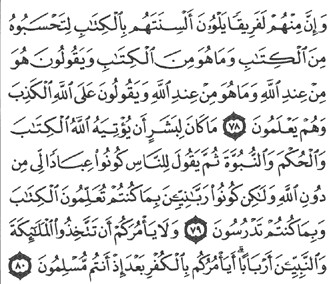 وَإِنَّ مِنْهُمْ لَفَرِيقًا يَلْوُۥنَ أَلْسِنَتَهُم بِٱلْكِتَٰبِ لِتَحْسَبُوهُ
مِنَ ٱلْكِتَٰبِ وَمَا هُوَ مِنَ ٱلْكِتَٰبِ وَيَقُولُونَ هُوَ
مِنْ عِندِ ٱللَّهِ وَمَا هُوَ مِنْ عِندِ ٱللَّهِ وَيَقُولُونَ عَلَى ٱللَّهِ ٱلْكَذِبَ
وَهُمْ يَعْلَمُونَ ٧٨ مَا كَانَ لِبَشَرٍ أَن يُؤْتِيَهُ ٱللَّهُ ٱلْكِتَٰبَ
وَٱلْحُكْمَ وَٱلنُّبُوَّةَ ثُمَّ يَقُولَ لِلنَّاسِ كُونُوا۟ عِبَادًا لِّى مِن
دُونِ ٱللَّهِ وَلَٰكِن كُونُوا۟ رَبَّٰنِيِّـۧنَ بِمَا كُنتُمْ تُعَلِّمُونَ ٱلْكِتَٰبَ
وَبِمَا كُنتُمْ تَدْرُسُونَ ٧٩ وَلَا يَأْمُرَكُمْ أَن تَتَّخِذُوا۟ ٱلْمَلَٰٓئِكَةَ
وَٱلنَّبِيِّـۧنَ أَرْبَابًا ۗ أَيَأْمُرُكُم بِٱلْكُفْرِ بَعْدَ إِذْ أَنتُم مُّسْلِمُونَ ٨٠